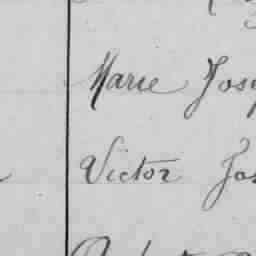 Marie Jos
Victor Jos